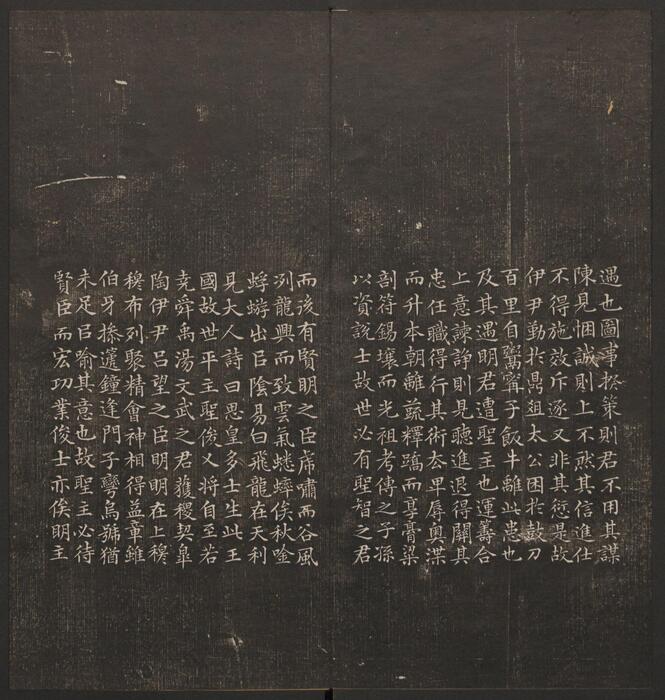 遇也圖事揆策則君不用其謀
陳見悃誠則上不然其信進仕
不得施效斥逐又非其愆是故
伊尹勤扵鼎俎太公困扵鼓刀
百里自鬻甯子飯牛離此患也
及其遇明君遭聖主也運籌合
上意諫諍則見聽進退得關其
忠任職得行其術去卑辱奧渫
而升本朝離蔬釋蹻而享膏粱
剖符錫壤而光祖考傳之子孫
以資說士故世必有聖智之君
而後有賢明之臣虎嘯而谷風
冽龍興而致雲氣蟋蟀俟秋唫
蜉蝣出㠯陰易曰飛龍在天利
見大人詩曰思皇多士生此王
國故世平主聖俊乂將自至若
堯舜禹湯文武之君獲稷契皐
陶伊尹呂望之臣明明在上穆
穆布列聚精會神相得益章雖
伯牙操遞鐘逢門子彎烏號猶
未足㠯喻其意也故聖主必待
賢臣而宏功業俊士亦俟明主